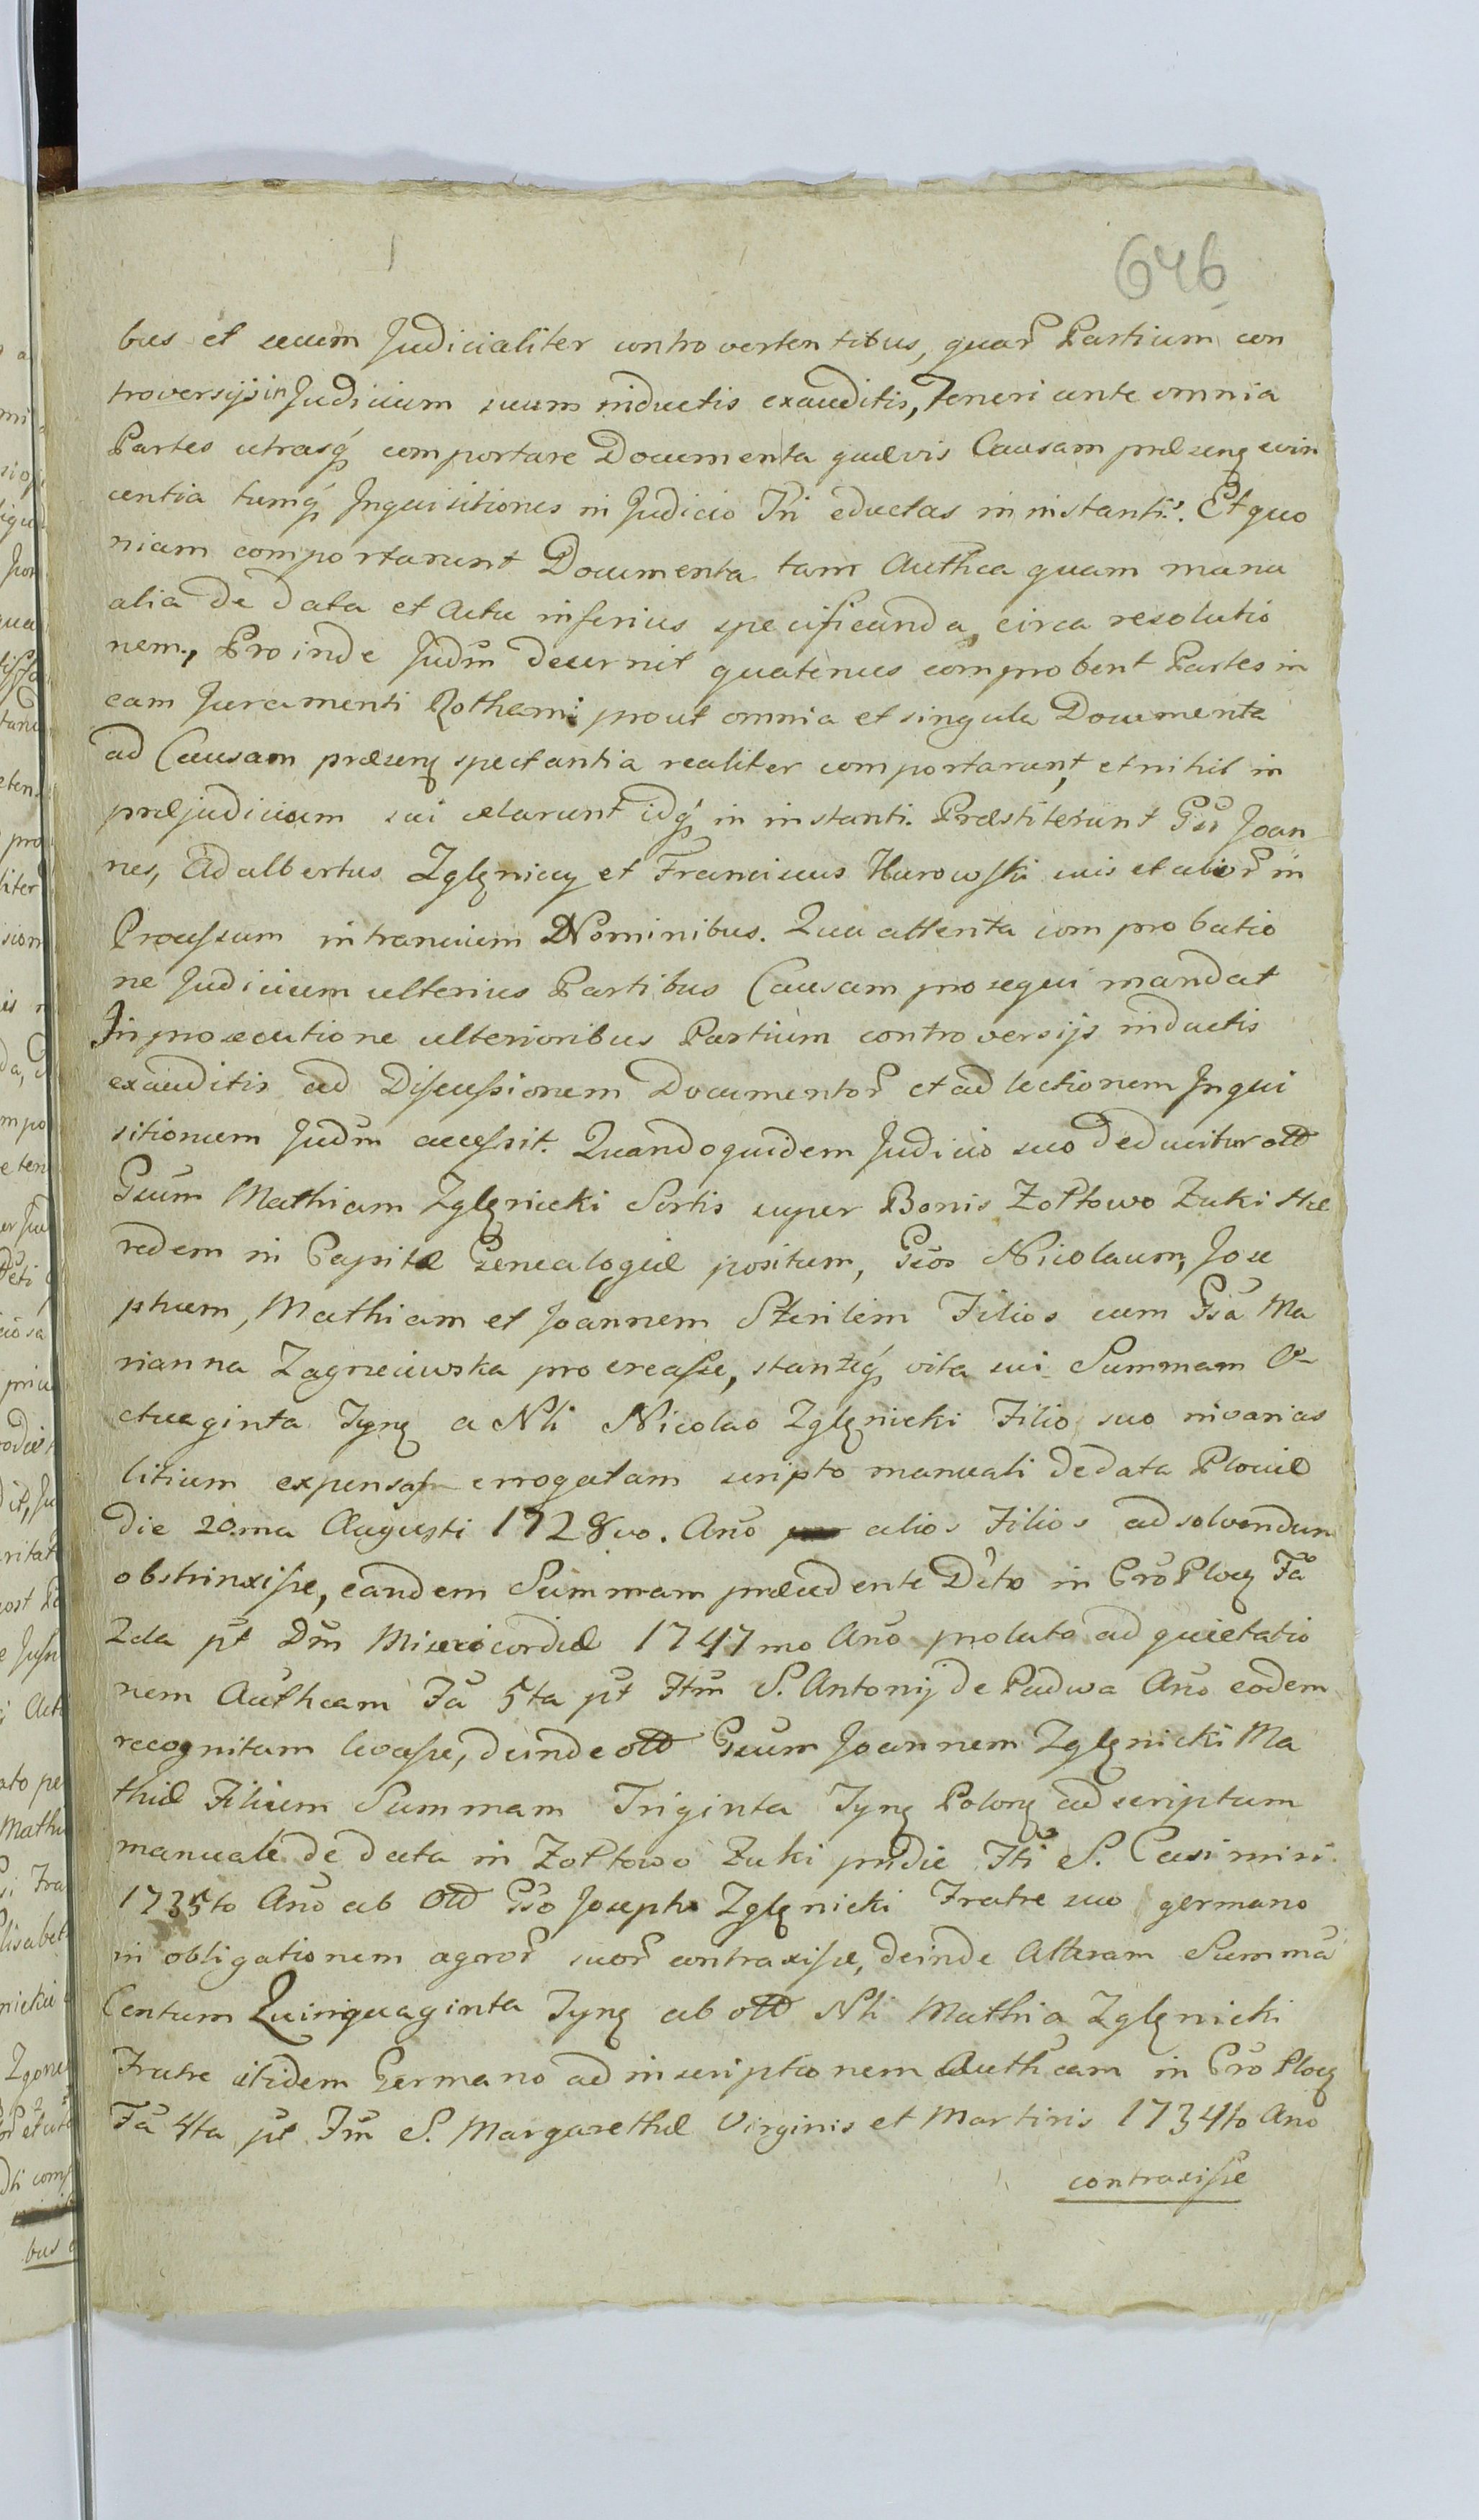 646
bus et secum Judicialiter controvertentibus, quar Partium con
troversijs in Judicium suum inductis exauditis, Teneri ante omnia
Partes utrasq comportare Documenta quævis Causam præsenq evin
centia tumq Inquisitiones in Judicio Pñi eductas in instanti. Et quo
niam comportarunt Documenta tam Authca quam manu
alia de data et Actu inferius specificanda, circa resolutio
nem, Proinde Judm decernit quatenus comprobent Partes in
eam Juramenti Rotham: prout omnia et singula Documenta
ad Causam præsenq spectantia realiter comportarunt, et nihil in
præjudicium sui celarunt idq in instanti. Præstiterunt Gsi Joan
nes, Adalbertus Zglęniccy et Franciscus Karowski suis et alior in
Processum intrancium Nominibus. Qua attenta comprobatio
ne Judicium ulterius Partibus Causam prosequi mandat
In prosecutione ulterioribus Partium controversijs inductis
exauditis ad Discussionem Documentor et ad lectionem Inqui
sitionum Judm accessit. Quandoquidem Judicio suo Deducitur olto
Gsum Mathiam Zglęnicki Sortis super Bonis Zołtowo Zuki Hæ
redem in Capite Genealogiæ positum, Gsos Nicolaum, Jose
phum, Mathiam et Joannem Sterilem Filios cum Gsa Ma
rianna Zagrzeiewska procreasse, stanteq vita sui Summam O
ctuaginta Tynq a Nli Nicolao Zglęnicki Filio suo in varias
litium expensas errogatam scripto manuali de data Plociæ
die 20.ma Augusti 1728vo. Ano alios Filios ad solvendum
obstrinxisse, eandem Summam præcedente Dcto in Cro Plocq Fa
2da pt Dm Misericordiæ 1747mo Ano prolato ad quietatio
nem Authcam Fa 5ta pt Ftm S. Antonij de Padwa Ano eodem
recognitam levasse, deinde olto Gsum Joannem Zglęnicki Ma
thiæ Filium Summam Triginta Tynq Polonq ad scriptum
manuale de data in Zołtowo Zuki pridie Fti S. Casimiri
1735to Ano ab Olto Gso Josepho Zglęnicki Fratre suo germano
in obligationem agror suor contraxisse, deinde Alteram Summa
Centum Quinquaginta Tynq ab olto Nli Mathia Zglęnicki
Fratre itidem Germano ad inscriptionem Authcam in Cro Plocq
Fa 4ta pt Fm S. Margarethæ Virginis et Martiris 1734to Ano
contraxisse